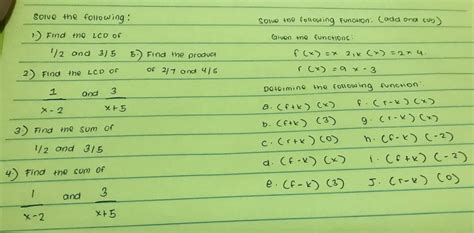 Solve the following:
1) Find the LCD of
1/2 and 3/5
2) Find the LCD of
1/x-2 and 3/x+5
3) Find the sum of
1/2 and 3/5
4) Find the sum of
1/x-2 and 3/x+5
5) Find the product
of 2/7 and 4/5
Solve the following function: (add and sub)
Given the functions:
f(x) = x 2, k(x) = 2x 4
r(x) = 9x - 3
Determine the following function:
a. (f+k)(x)
b. (f+k)(3)
c. (r+k)(0)
d. (f-k)(x)
e. (f-k)(3)
f. (r-k)(x)
g. (r-k)(x)
h. (f-k)(-2)
i. (f+k)(-2)
J. (r-k)(0)